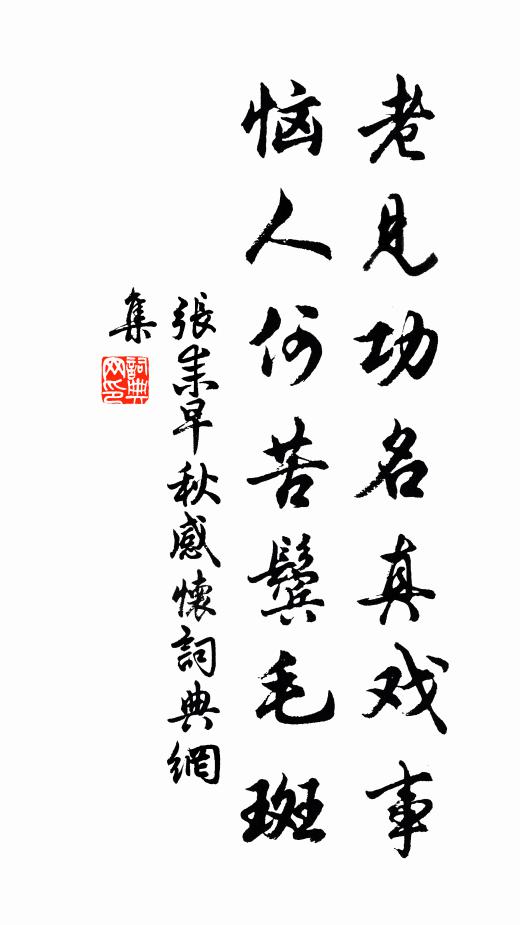 老見功名真戏事
恼人何苦鬓毛斑
張耒早秋感懷詞典網
集
詞典
网印